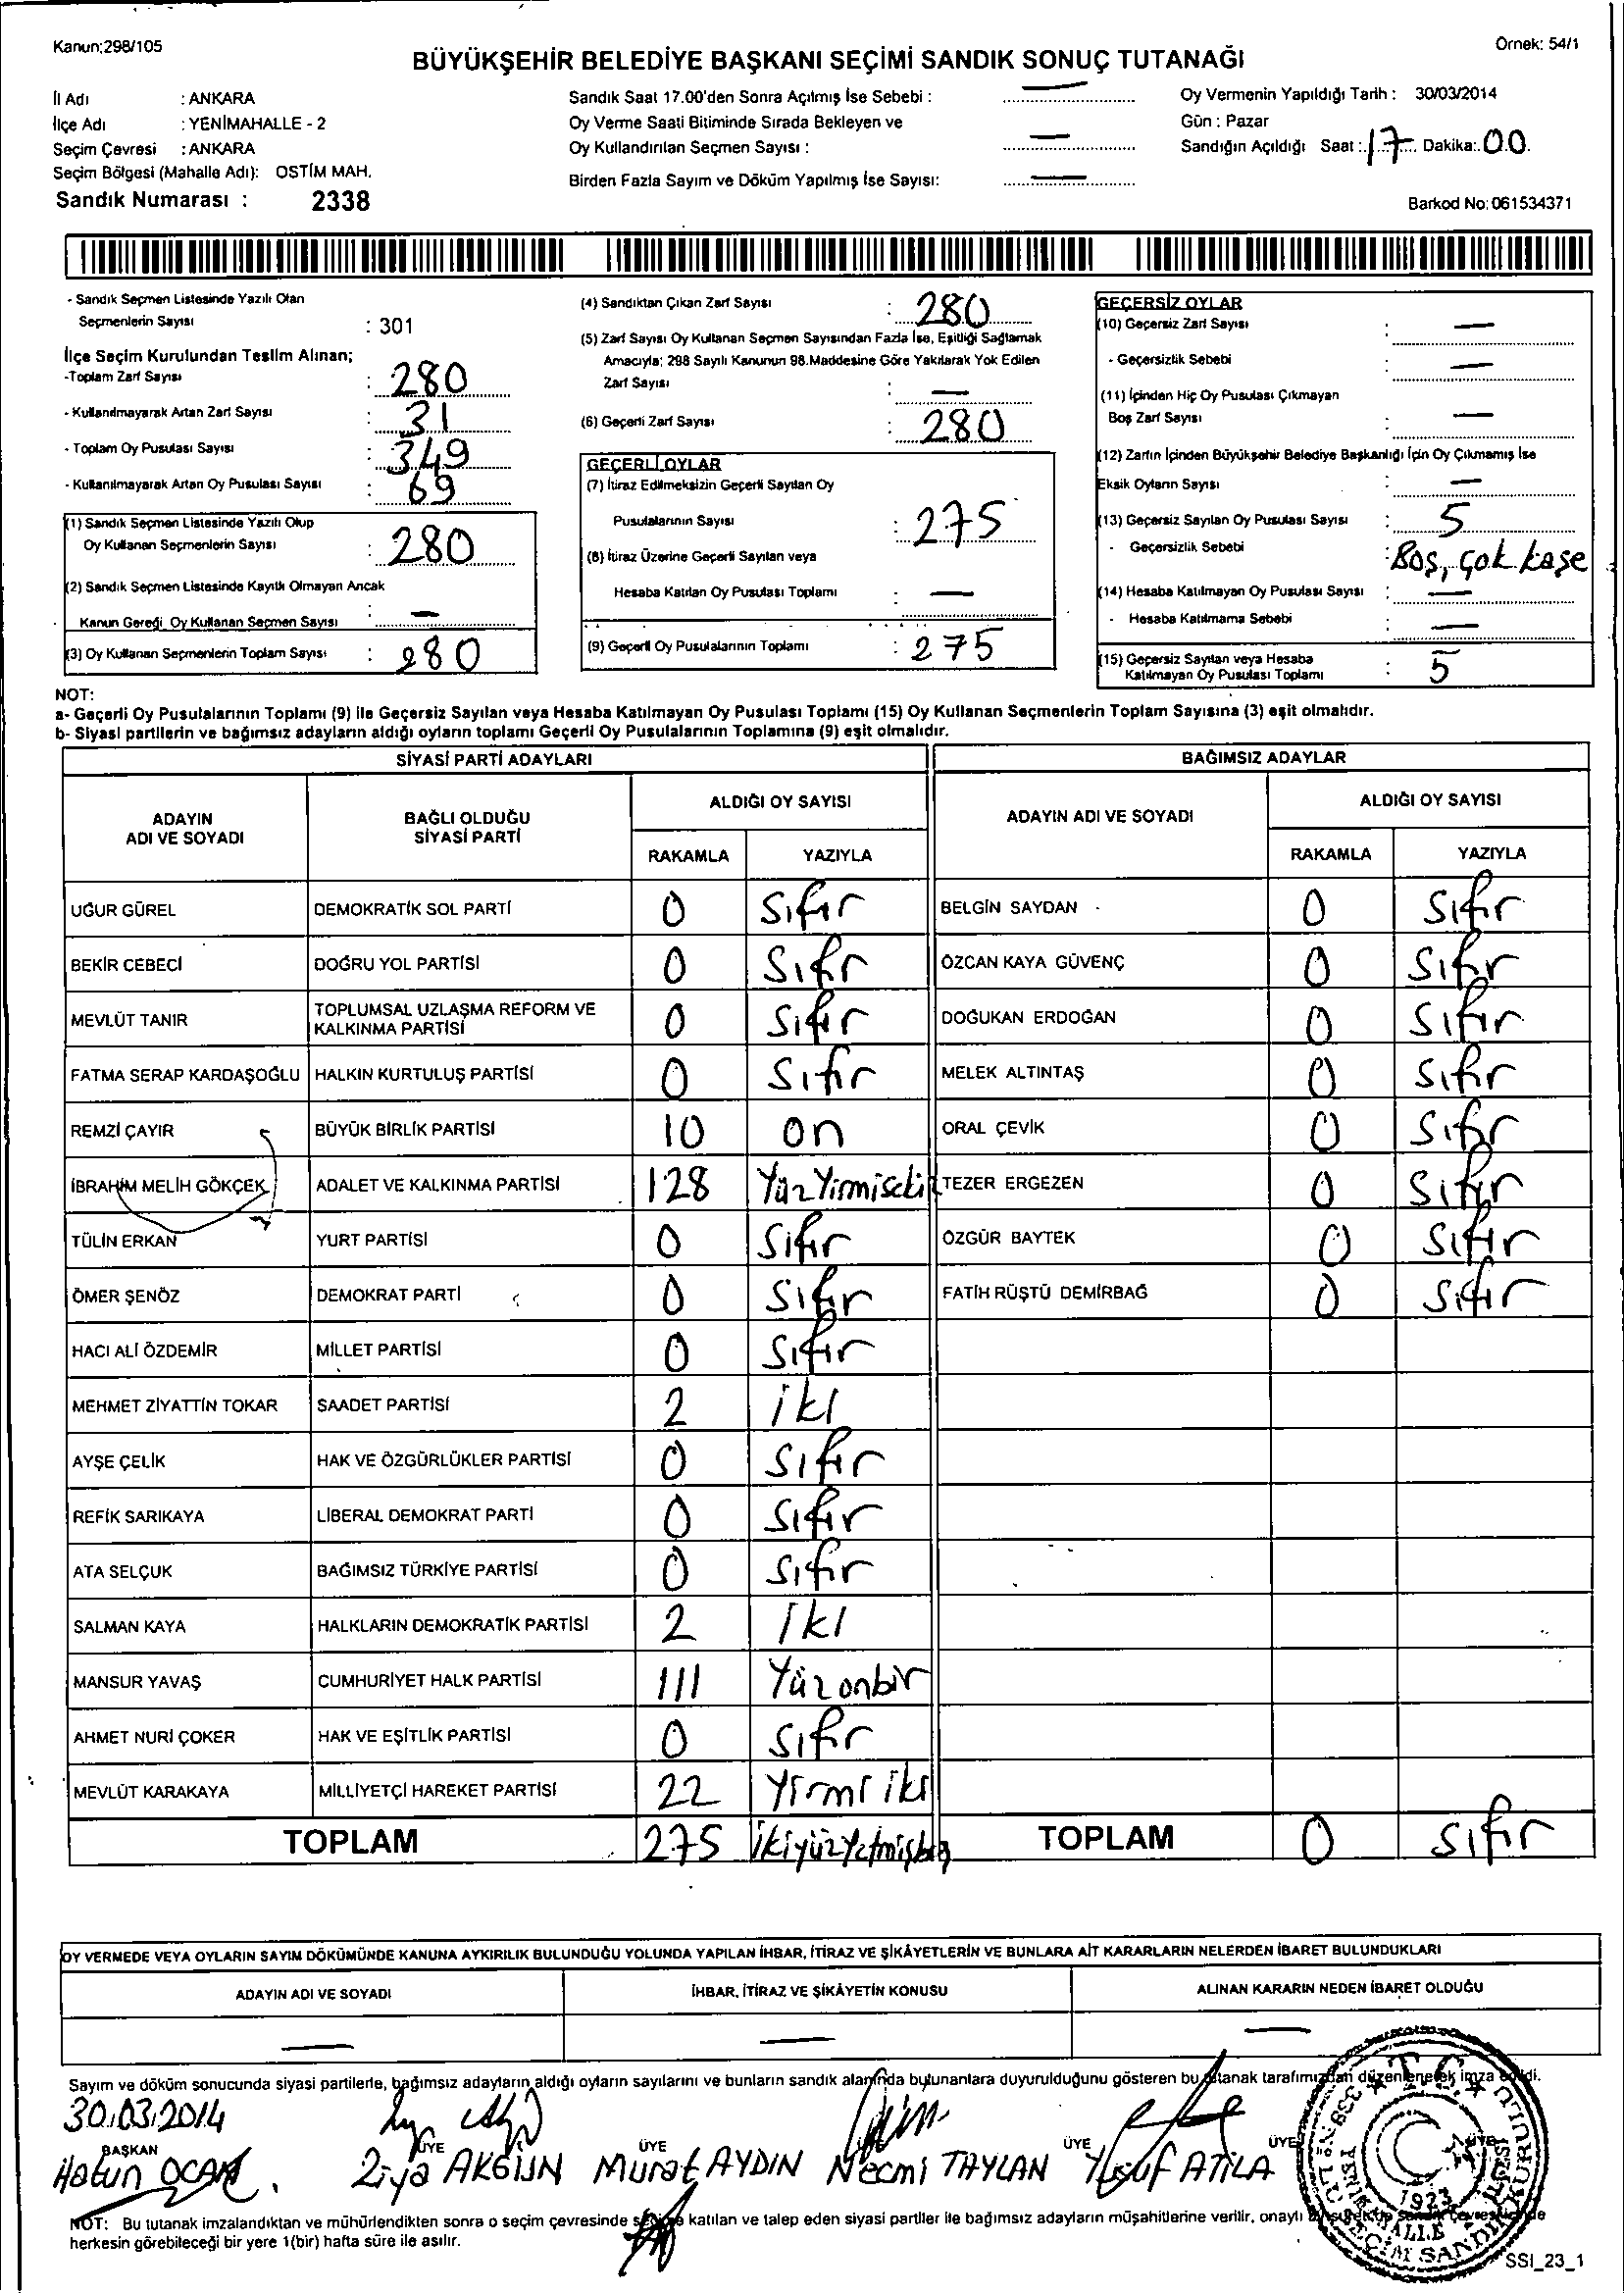 Kanun:298/105
Örnek: 54/1
BÜYÜKŞEHİR BELEDİYE BAŞKANI SEÇİMİ SANDIK SONUÇ TUTANAĞI
İl Adı : ANKARA
İlçe Adı : YENİMAHALLE - 2
Seçim Çevresi : ANKARA
Seçim Bölgesi (Mahalle Adı): OSTİM MAH.
Sandık Numarası : 2338
Sandık Saat 17.00'den Sonra Açılmış İse Sebebi : —
Oy Verme Saati Bitiminde Sırada Bekleyen ve
Oy Kullandırılan Seçmen Sayısı : —
Birden Fazla Sayım ve Döküm Yapılmış İse Sayısı: —
Oy Vermenin Yapıldığı Tarih : 30/03/2014
Gün : Pazar
Sandığın Açıldığı Saat : 17 Dakika: 00
Barkod No: 061534371
- Sandık Seçmen Listesinde Yazılı Olan
Seçmenlerin Sayısı : 301
İlçe Seçim Kurulundan Teslim Alınan;
-Toplam Zarf Sayısı : 280
- Kullanılmayarak Artan Zarf Sayısı : 31
- Toplam Oy Pusulası Sayısı : 349
- Kullanılmayarak Artan Oy Pusulası Sayısı : 69
(1) Sandık Seçmen Listesinde Yazılı Olup
Oy Kullanan Seçmenlerin Sayısı : 280
(2) Sandık Seçmen Listesinde Kayıtlı Olmayan Ancak
Kanun Gereği Oy Kullanan Seçmen Sayısı —
(3) Oy Kullanan Seçmenlerin Toplam Sayısı : 280
(4) Sandıktan Çıkan Zarf Sayısı : 280
(5) Zarf Sayısı Oy Kullanan Seçmen Sayısından Fazla İse, Eşitliği Sağlamak
Amacıyla; 298 Sayılı Kanunun 98.Maddesine Göre Yakılarak Yok Edilen
Zarf Sayısı : —
(6) Geçerli Zarf Sayısı : 280
GEÇERLİ OYLAR
(7) İtiraz Edilmeksizin Geçerli Sayılan Oy
Pusulalarının Sayısı : 275
(8) İtiraz Üzerine Geçerli Sayılan veya
Hesaba Katılan Oy Pusulası Toplamı : —
(9) Geçerli Oy Pusulalarının Toplamı : 275
GEÇERSİZ OYLAR
(10) Geçersiz Zarf Sayısı : —
- Geçersizlik Sebebi : —
(11) İçinden Hiç Oy Pusulası Çıkmayan
Boş Zarf Sayısı : —
(12) Zarfın İçinden Büyükşehir Belediye Başkanlığı İçin Oy Çıkmamış İse
Eksik Oyların Sayısı : —
(13) Geçersiz Sayılan Oy Pusulası Sayısı : 5
- Geçersizlik Sebebi : Boş, çok kaşe
(14) Hesaba Katılmayan Oy Pusulası Sayısı : —
- Hesaba Katılmama Sebebi : —
(15) Geçersiz Sayılan veya Hesaba
Katılmayan Oy Pusulası Toplamı : 5
NOT:
a- Geçerli Oy Pusulalarının Toplamı (9) ile Geçersiz Sayılan veya Hesaba Katılmayan Oy Pusulası Toplamı (15) Oy Kullanan Seçmenlerin Toplam Sayısına (3) eşit olmalıdır.
b- Siyasi partilerin ve bağımsız adayların aldığı oyların toplamı Geçerli Oy Pusulalarının Toplamına (9) eşit olmalıdır.
SİYASİ PARTİ ADAYLARI
ADAYIN ADI VE SOYADI
BAĞLI OLDUĞU SİYASİ PARTİ
ALDIĞI OY SAYISI
RAKAMLA YAZIYLA
UĞUR GÜREL DEMOKRATİK SOL PARTİ 0 Sıfır
BEKİR CEBECİ DOĞRU YOL PARTİSİ 0 Sıfır
MEVLÜT TANIR TOPLUMSAL UZLAŞMA REFORM VE KALKINMA PARTİSİ 0 Sıfır
FATMA SERAP KARDAŞOĞLU HALKIN KURTULUŞ PARTİSİ 0 Sıfır
REMZİ ÇAYIR BÜYÜK BİRLİK PARTİSİ 10 on
İBRAHİM MELİH GÖKÇEK ADALET VE KALKINMA PARTİSİ 128 Yüzyirmisekiz
TÜLİN ERKAN YURT PARTİSİ 0 Sıfır
ÖMER ŞENÖZ DEMOKRAT PARTİ 0 Sıfır
HACI ALİ ÖZDEMİR MİLLET PARTİSİ 0 Sıfır
MEHMET ZİYATTİN TOKAR SAADET PARTİSİ 2 iki
AYŞE ÇELİK HAK VE ÖZGÜRLÜKLER PARTİSİ 0 Sıfır
REFİK SARIKAYA LİBERAL DEMOKRAT PARTİ 0 Sıfır
ATA SELÇUK BAĞIMSIZ TÜRKİYE PARTİSİ 0 Sıfır
SALMAN KAYA HALKLARIN DEMOKRATİK PARTİSİ 2 iki
MANSUR YAVAŞ CUMHURİYET HALK PARTİSİ 111 Yüzonbir
AHMET NURİ ÇOKER HAK VE EŞİTLİK PARTİSİ 0 Sıfır
MEVLÜT KARAKAYA MİLLİYETÇİ HAREKET PARTİSİ 22 Yirmi iki
TOPLAM 275 ikiyüzyetmişbeş
BAĞIMSIZ ADAYLAR
ADAYIN ADI VE SOYADI
ALDIĞI OY SAYISI
RAKAMLA YAZIYLA
BELGİN SAYDAN 0 Sıfır
ÖZCAN KAYA GÜVENÇ 0 Sıfır
DOĞUKAN ERDOĞAN 0 Sıfır
MELEK ALTINTAŞ 0 Sıfır
ORAL ÇEVİK 0 Sıfır
TEZER ERGEZEN 0 Sıfır
ÖZGÜR BAYTEK 0 Sıfır
FATİH RÜŞTÜ DEMİRBAĞ 0 Sıfır
TOPLAM 0 Sıfır
OY VERMEDE VEYA OYLARIN SAYIM DÖKÜMÜNDE KANUNA AYKIRILIK BULUNDUĞU YOLUNDA YAPILAN İHBAR, İTİRAZ VE ŞİKÂYETLERİN VE BUNLARA AİT KARARLARIN NELERDEN İBARET BULUNDUKLARI
ADAYIN ADI VE SOYADI İHBAR, İTİRAZ VE ŞİKÂYETİN KONUSU ALINAN KARARIN NEDEN İBARET OLDUĞU
— — —
Sayım ve döküm sonucunda siyasi partilerle, bağımsız adayların aldığı oyların sayılarını ve bunların sandık alanında bulunanlara duyurulduğunu gösteren bu tutanak tarafımızdan düzenlenerek imza edildi.
30.03.2014
BAŞKAN ÜYE ÜYE ÜYE ÜYE ÜYE ÜYE
Hatun OCAK Ziya AKGÜN Murat AYDIN Necmi TAYLAN Yusuf ATİLA
T.C.
1923
NOT: Bu tutanak imzalandıktan ve mühürlendikten sonra o seçim çevresinde seçime katılan ve talep eden siyasi partiler ile bağımsız adayların müşahitlerine verilir, onaylı
herkesin görebileceği bir yere 1(bir) hafta süre ile asılır.
SSI_23_1